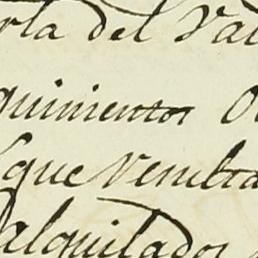 rla del Val
quinientos O
que Vendra
alquilados